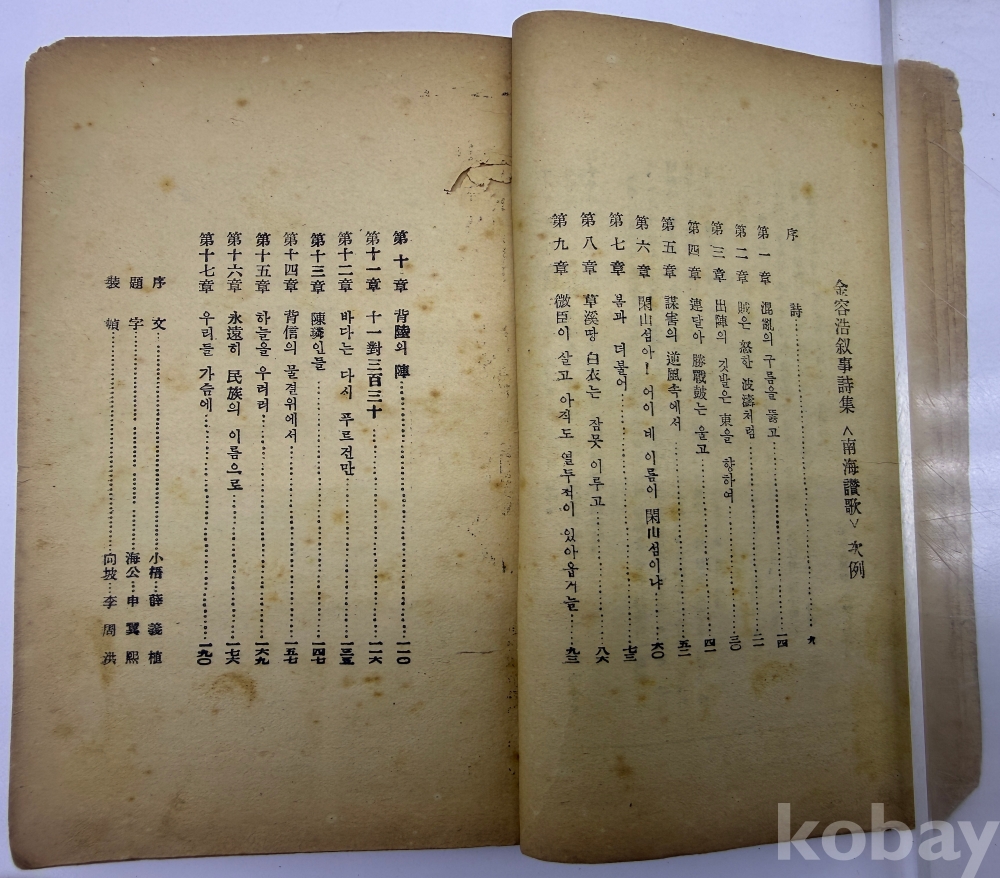 金容浩敍事詩集 <南海讃歌> 次例
序 詩 六
第一章 混亂의 구름을 뚫고 一四
第二章 賊은 怒한 波濤처럼 二一
第三章 出陣의 깃발은 東을 향하여 三〇
第四章 連달아 勝戰鼓는 울고 四一
第五章 謀害의 逆風속에서 五二
第六章 閑山섬아! 어이 네 이름이 閑山섬이냐 六〇
第七章 봄과 더불어 七三
第八章 草溪땅 白衣는 잠못 이루고 八六
第九章 微臣이 살고 아직도 열두척이 있아옵거늘 九三
第十章 背陸의 陣 一一〇
第十一章 十一對三百三十 一二六
第十二章 바다는 다시 푸르진만 一三五
第十三章 陳璘인들 一四七
第十四章 背信의 물결위에서 一五七
第十五章 하늘을 우러러 一六九
第十六章 永遠히 民族의 이름으로 一七六
第十七章 우리들 가슴에 一九〇
序文 小梧 薛義植
題字 海公 申翼熙
裝幀 向坡 李周洪
kobay